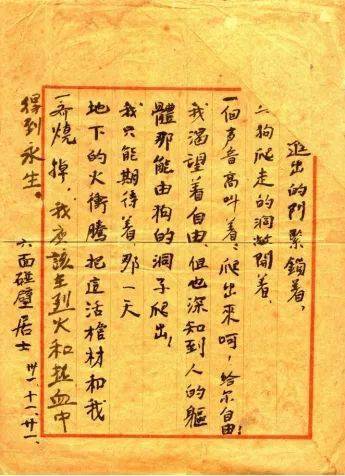 進出的门緊鎖着,
狗爬走的洞敞開着,
一個声音高叫着:爬出來呵,給尔自由!
我渴望着自由,但也深知到人的軀
體那能由狗的洞子爬出!
我只能期待着,那一天
地下的火衝騰,把這活棺材和我
一齊燒掉,我應該在烈火和热血中
得到永生。
六面碰壁居士 卅一.十一.廿一.